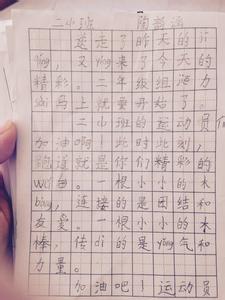 二小班
送走了昨天的jī
yǒng，又yíng来了今天的
精彩。二年级组接力
sài马上就要开始了。
二小班的运动员们
加油啊！此时此刻，
跑道就是你们精彩的
wǔ台。一根小小的木
bàng，连接的是团结和
友爱。一根小小的木
棒，传dì的是yǒng气和
力量。
加油吧！运动员